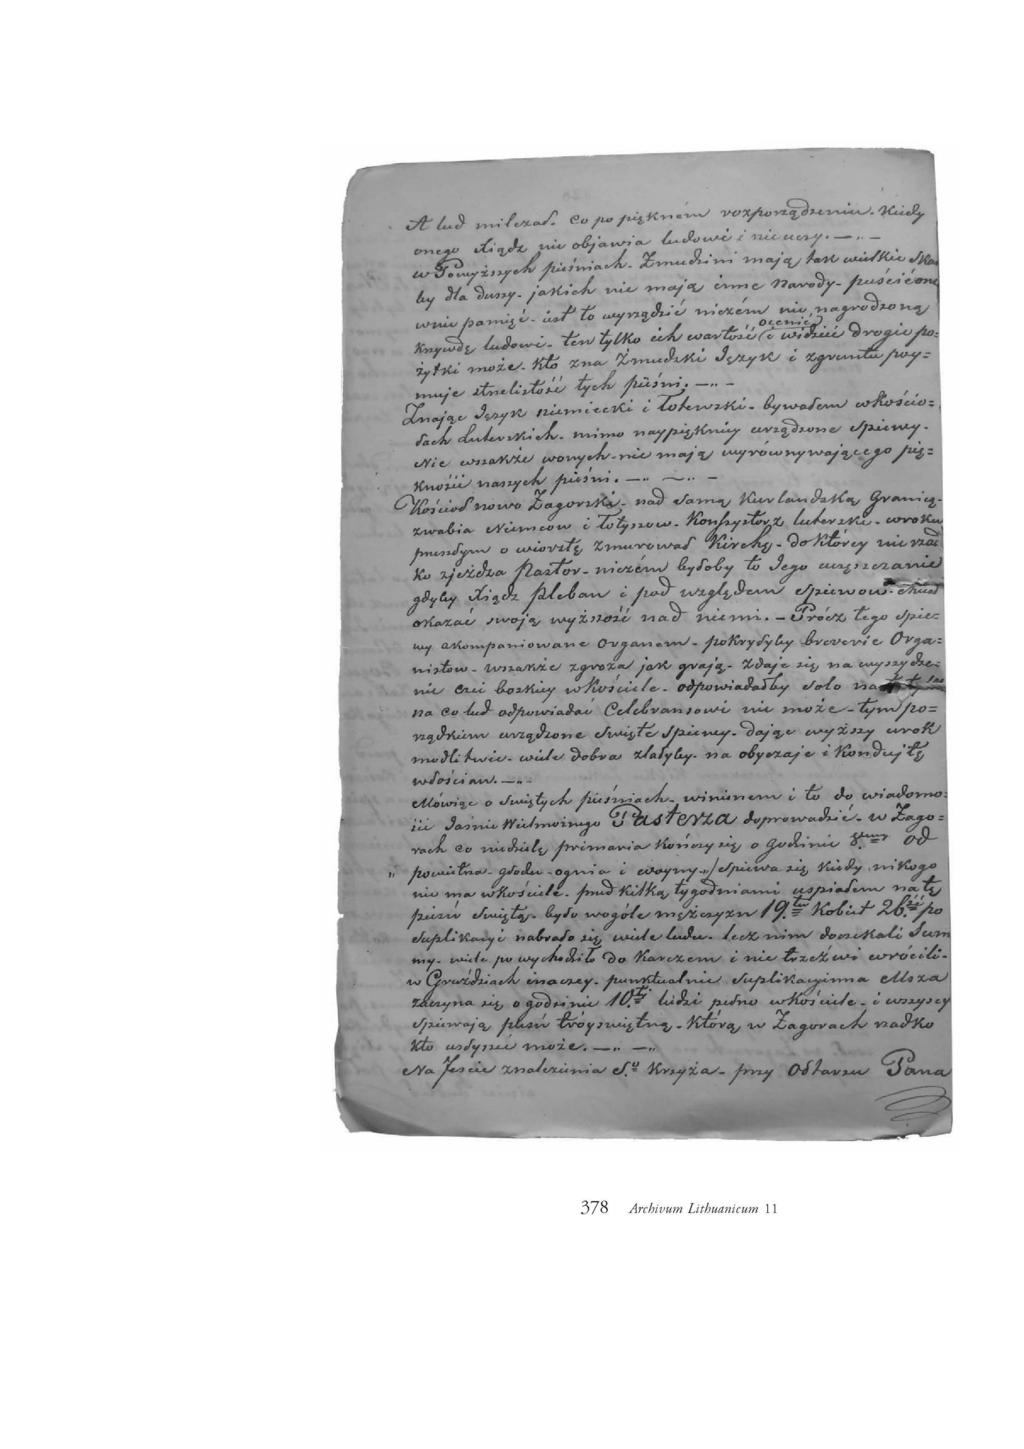 A lud milczał. Co po pięknem rozporządzeniu. Kiedy
onego Xiądz nie objawia ludowi i nie uczy. —„—
w Powyższych pieśniach. Żmudzini mają tak wielkie Skar
by dla duszy. jakich nie mają inne Narody. puścić one
w nie pamięć. jest to wyrządzić niczém nie nagrodzoną
Krzywdę ludowi. ten tylko ich wartość ocenić i widzieć drogie po=
żytki może. Kto zna Żmudzki Język i z gruntu poy=
muje strzelistość tych pieśni. —„—
Znając Język niemiecki i Łotewski. bywałem w Kościo=
łach Luterskich. mimo naypiękniey urządzone Spiewy.
Nie wszakże w onych. nie mają wyrównywającego pię=
kności naszych pieśni. —„ — „ —
Kościoł nowo Żagorski. nad samą Kurlandzką Granicą.
zwabia Niemcow i Łotyszow. Konsystorz luterski. w roku
przeszłym o wiorstę zmurował Kirchę. do Którey nie rzad
ko zjeżdza Pastor. niczém byłoby to Jego uczęszczanie
gdyby Xiądz Pleban i pod względem Spiewow. chciał
okazać swoją wyższość nad niemi. — Prócz tego Spie=
wy akompaniowane Organem. pokryłyby brewerie Orga=
nistow. wszakże zgroza jak grają. zdaje się na wyszydze=
nie czci boskiey w Kościele. odpowiadałby solo na
na co lud odpowiadać Celebransowi nie może. tym po=
rządkiem urządzone święte Spiewy. dając wyższy urok
modlitwie. wiele dobra zlałyby. na obyczaje i Kondujtę
włościan. —„—
Mówiąc o świętych pieśniach. winienem i to do wiadomo=
ści Jaśnie Wielmożnego Pasterza doprowadzić. w Żago=
rach co niedzielę primaria Kończy się o godzinie 8mey od
„ powietrza głodu ognia i woyny „/ Spiewa się Kiedy nikogo
nie ma w Kościele. przed Kilką tygodniami uspiałem na tę
pieśń świętą. było wogóle mężczyzn 19.tu Kobiet 26.ść po
Suplikacyi nabrało się wiele ludu. lecz nim doczekali Sum
my. wiele po wychodziło do Karczem i nie trzeźwi wrócili.
w Gruździach inaczey. punktualnie Suplikacyinna Msza
zaczyna się o godzinie 10.téj ludzi pełno w Kościele. i wszyscy
spiewają pieśń tróyświętną. Którą w Żagorach rzadko
Kto usłyszeć może. —„—„
Na Feście znalezienia S.o Krzyża. przy Ołtarzu Pana
378 Archivum Lithuanicum 11